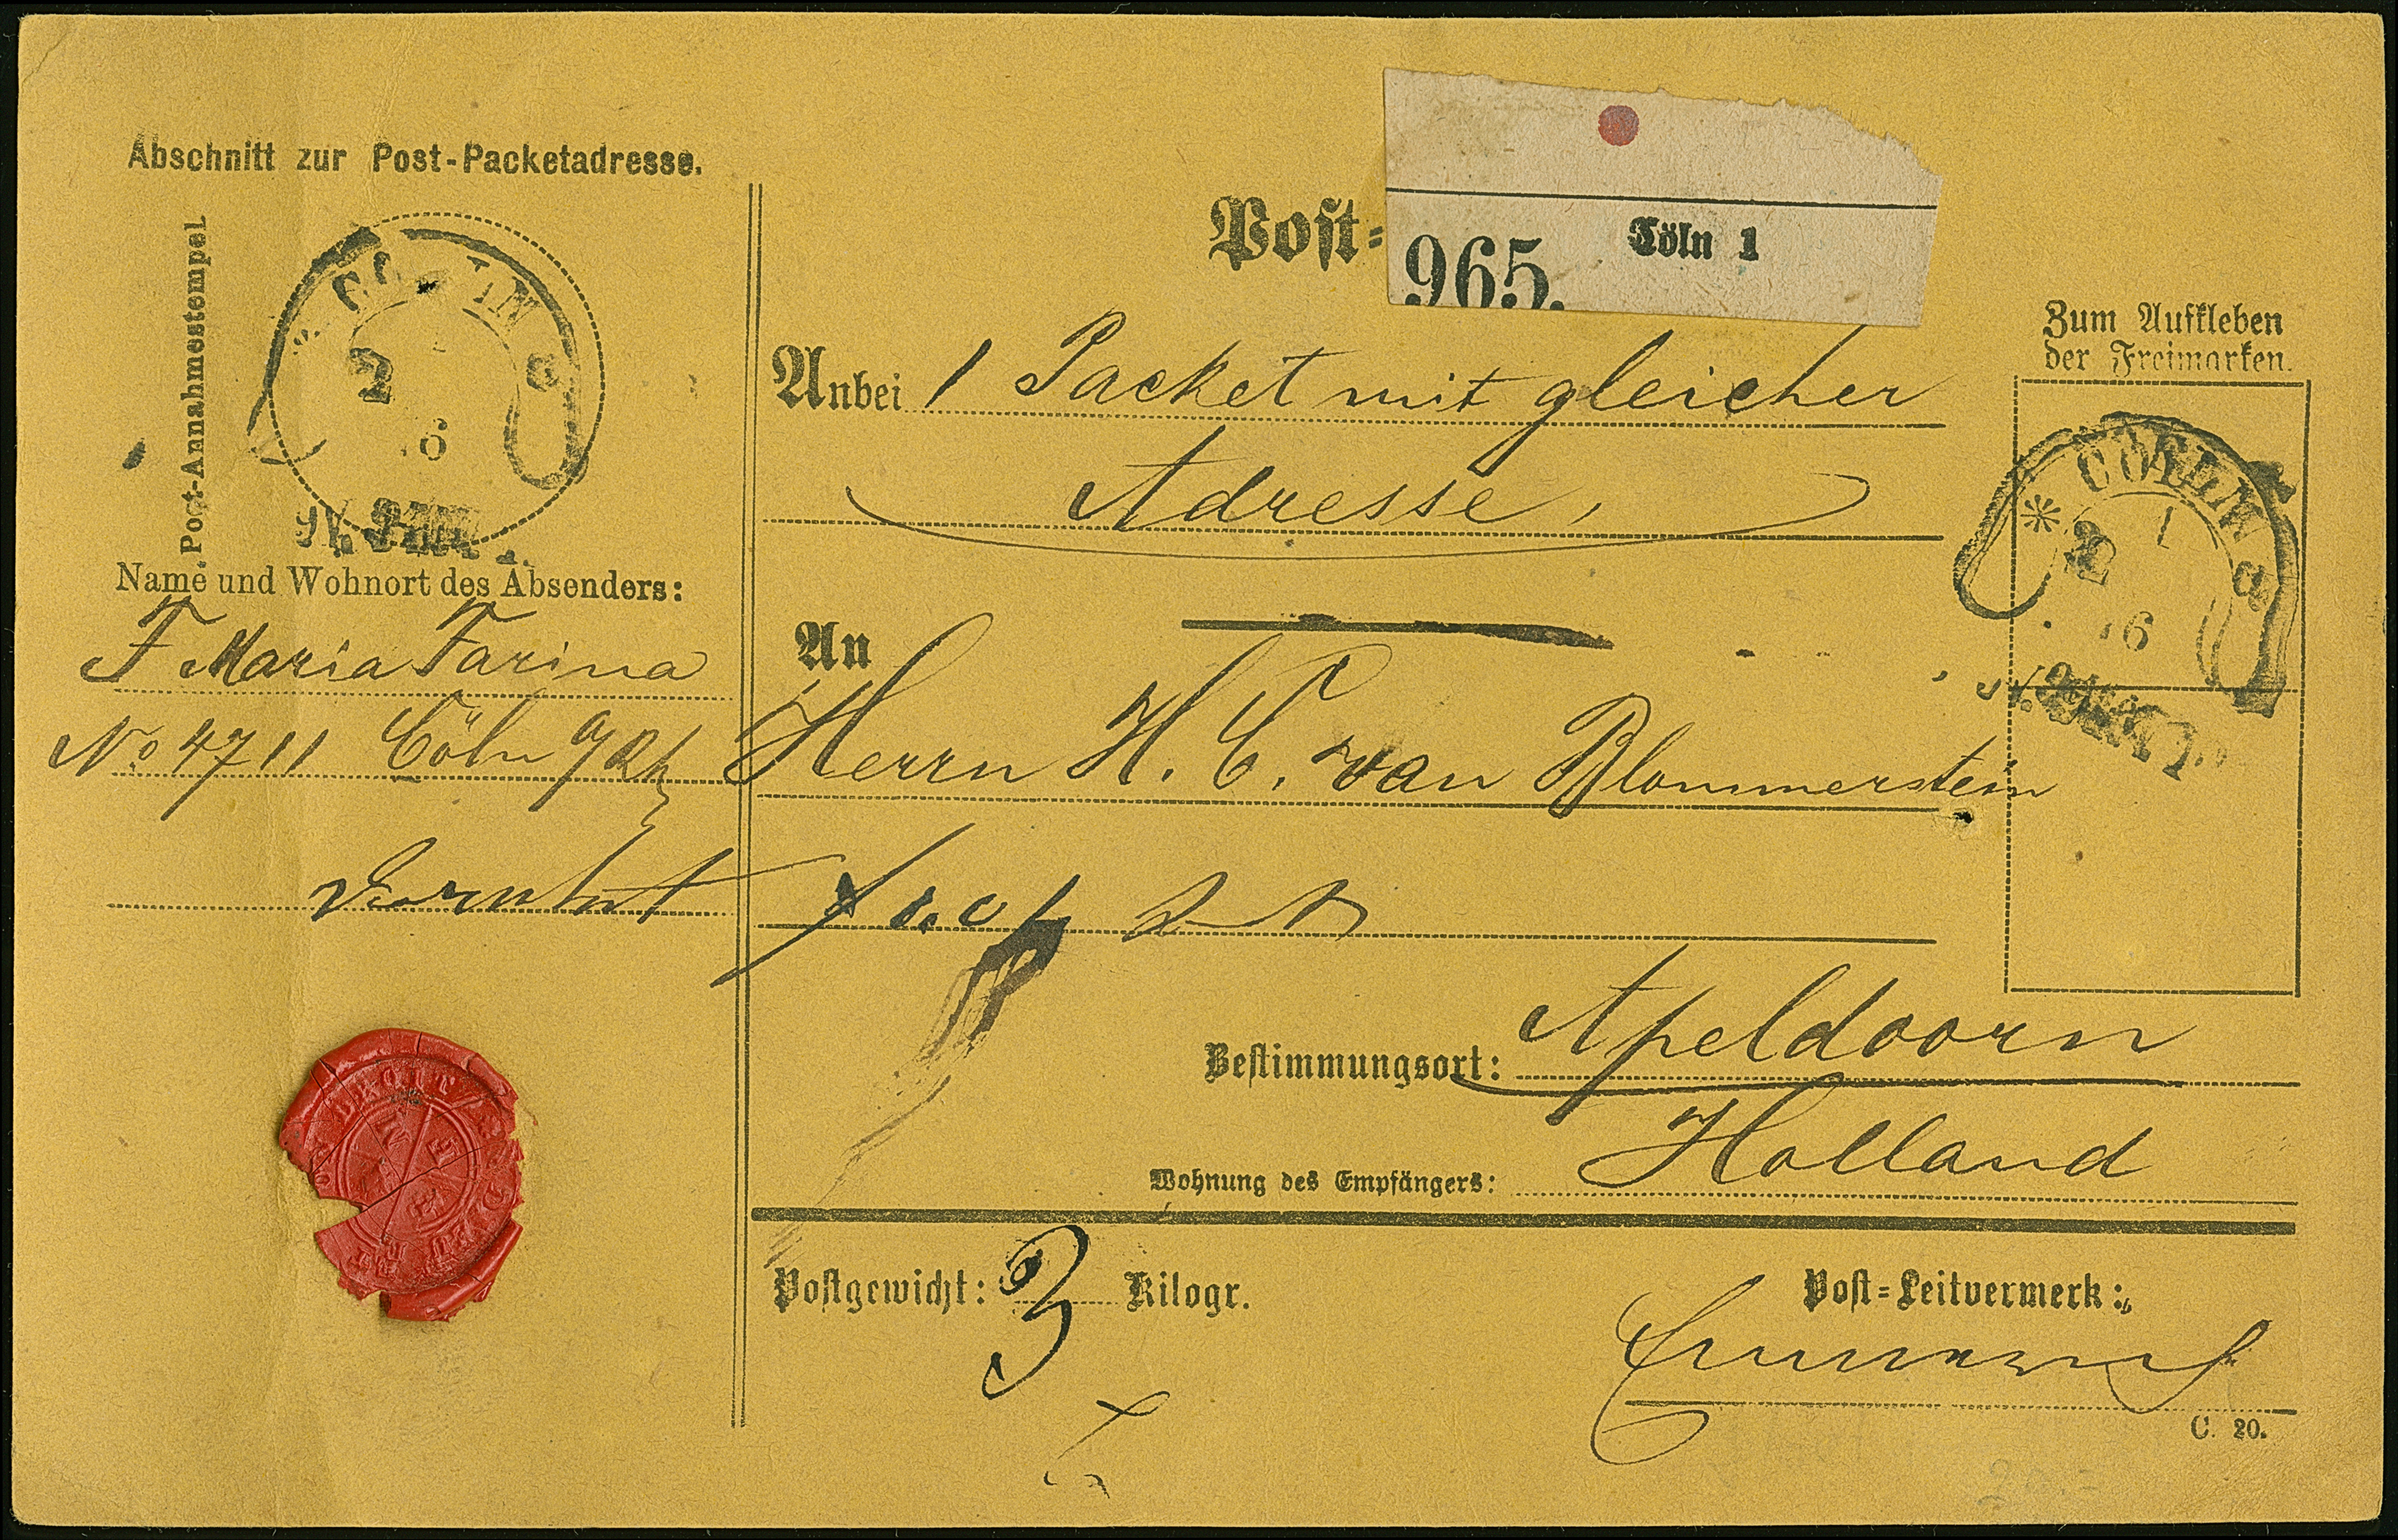 Abschnitt zur Post-Packetadresse.
Post-Annahmestempel.
2
6
Name und Wohnort des Absenders:
F Maria Farina
No 4711 Cöln a/Rh
Post=
965. Cöln 1
Anbei 1 Packet mit gleicher
Adresse,
An
Herrn H. C. van Blommerstein
Zum Aufkleben
der Freimarken.
* COELN a
2 1
6
Bestimmungsort: Apeldoorn
Holland
Wohnung des Empfängers:
Postgewicht: 3 Kilogr.
Post=Leitvermerk:
C. 20.